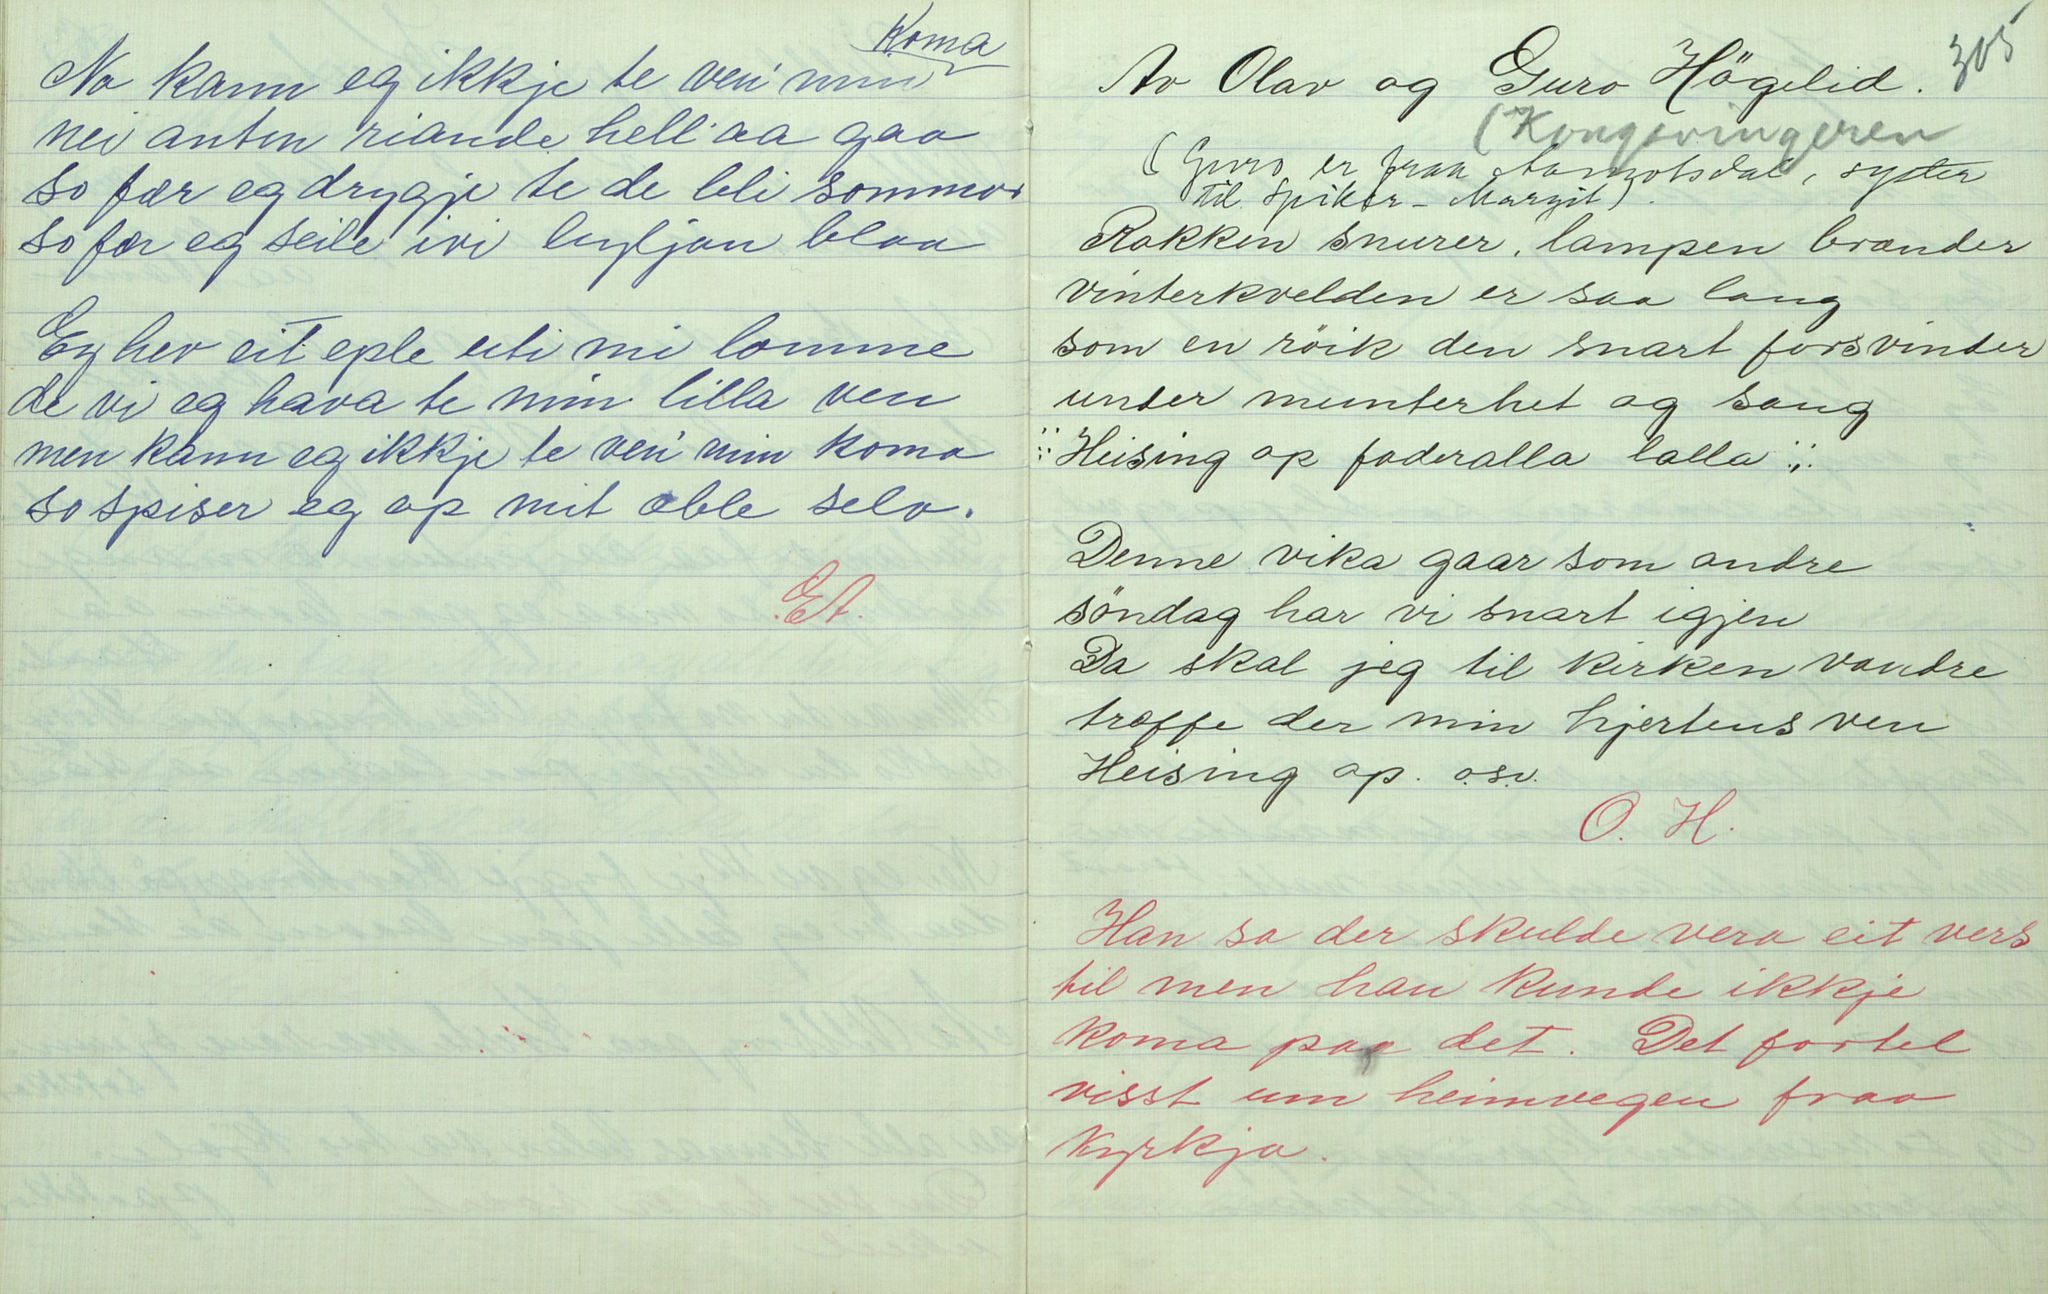 koma
No kann eg ikkje te ven min
nei anten riande hell aa gaa
so fær eg drygje te de bli sommar
so fær eg seile ivi byljan blaa
Eg hev eit eple uti mi lomme
de vi eg hava te min lilla ven
men kann eg ikkje te ven min koma
so spiser eg op mit æble selv.
E.A.
305
Av Olav og Guro Högelid.
(Kongsvingeren
(Guro er fraa Aamotsdal, syster
til Spikar-Margit).
Rokken snurer, lampen brænder
vinterkvelden er saa lang
som en röik den snart forsvinder
under munterhet og sang
:: Heising op faderalla lalla ::
Denne vika gaar som andre
söndag har vi snart igjen
Da skal jeg til kirken vandre
træffe der min hjertens ven
Heising op. osv.
O. H.
Han sa der skulde vera eit vers
til men han kunde ikkje
koma paa det. Det fortel
visst um heimvegen fraa
kyrkja.